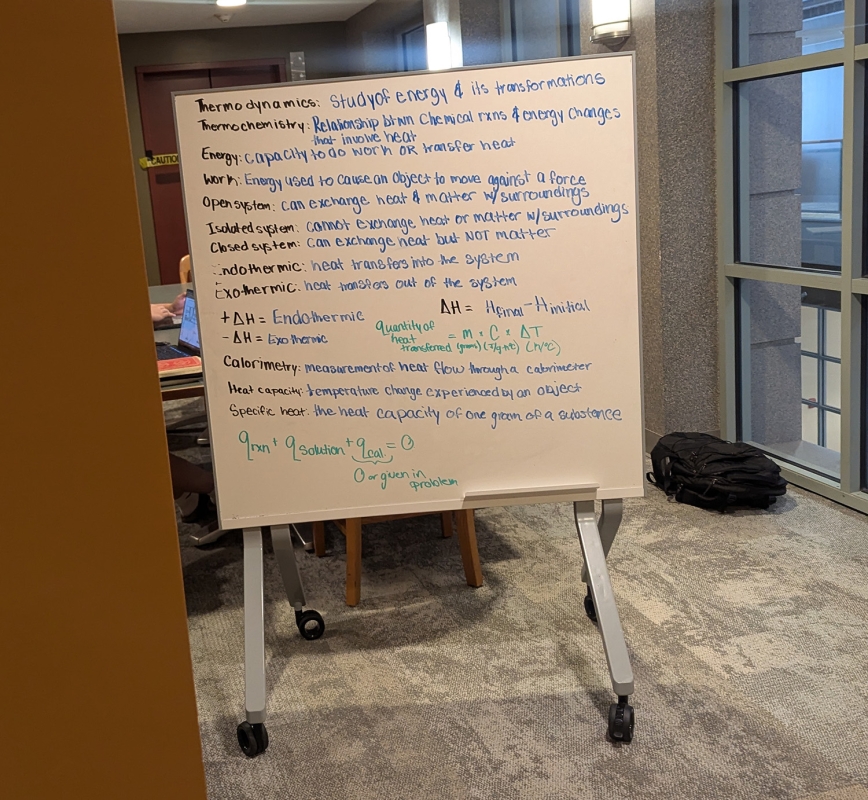 Thermodynamics: Study of energy & its transformations
Thermochemistry: Relationship btwn Chemical rxns & energy changes
that involve heat
Energy: capacity to do work OR transfer heat
CAUTIO
Work: Energy used to cause an object to move against a force
Open system: can exchange heat & matter w/surroundings
Isolated system: cannot exchange heat or matter w/surroundings
Closed system: Can exchange heat but NOT matter
Endothermic: heat transfers into the system
Exothermic: heat transfers out of the system
+ΔH = Endothermic
ΔH = Hfinal - Hinitial
-ΔH = Exothermic
quantity of
heat
transferred = m × C × ΔT
(grams)
Calorimetry: measurement of heat flow through a calorimeter
Heat capacity: temperature change experienced by an object
Specific heat: the heat capacity of one gram of a substance
qrxn + qsolution + qcal. = 0
0 or given in
problem